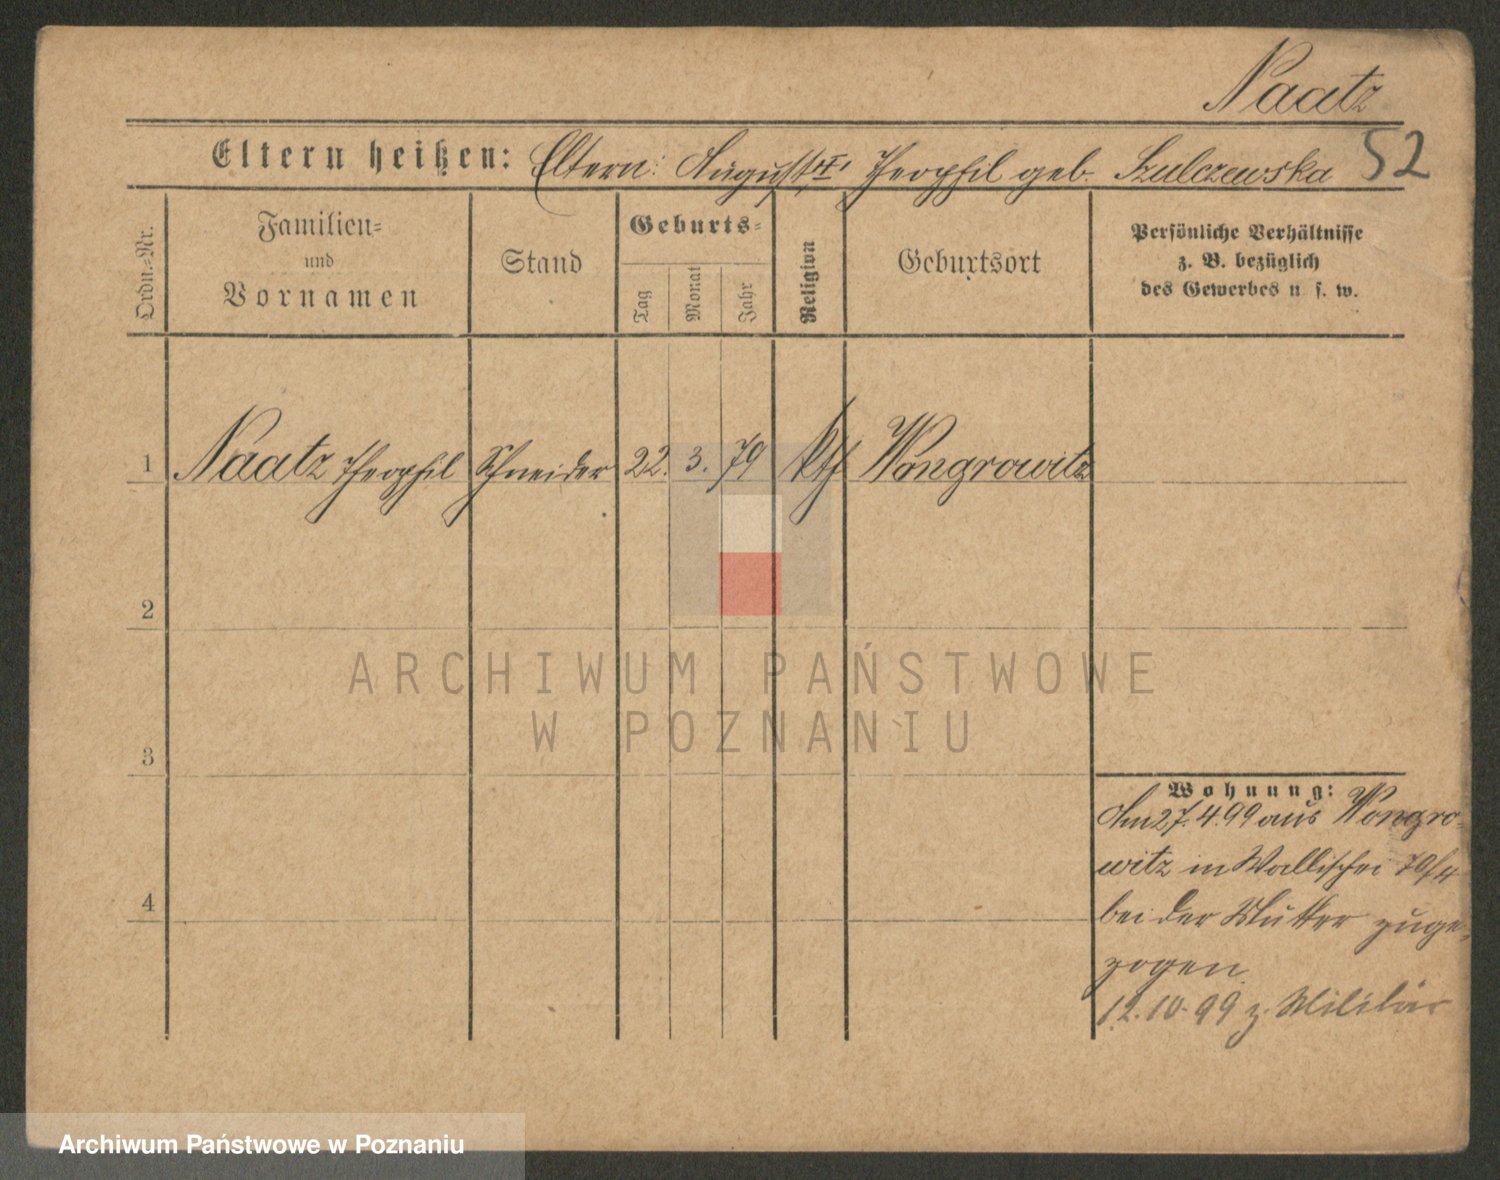 Naatz
52
Eltern heißen: Eltern: August Theophil geb. Szulczewska
Ordn.-Nr.
Familien=
und
Vornamen
Stand
Geburts=
Tag
Monat
Jahr
Religion
Geburtsort
Persönliche Verhältnisse
z. B. bezüglich
des Gewerbes u. s. w.
1 Naatz Theophil Schneider 22. 3. 79 kth Wongrowitz
2
ARCHIWUM PAŃSTWOWE
W POZNANIU
3
Wohnung:
Am 27.4.99 aus Wongro-
witz in Wallischei 70/4
4
bei der Mutter zuge-
zogen.
12.10.99 z. Militär
Archiwum Państwowe w Poznaniu